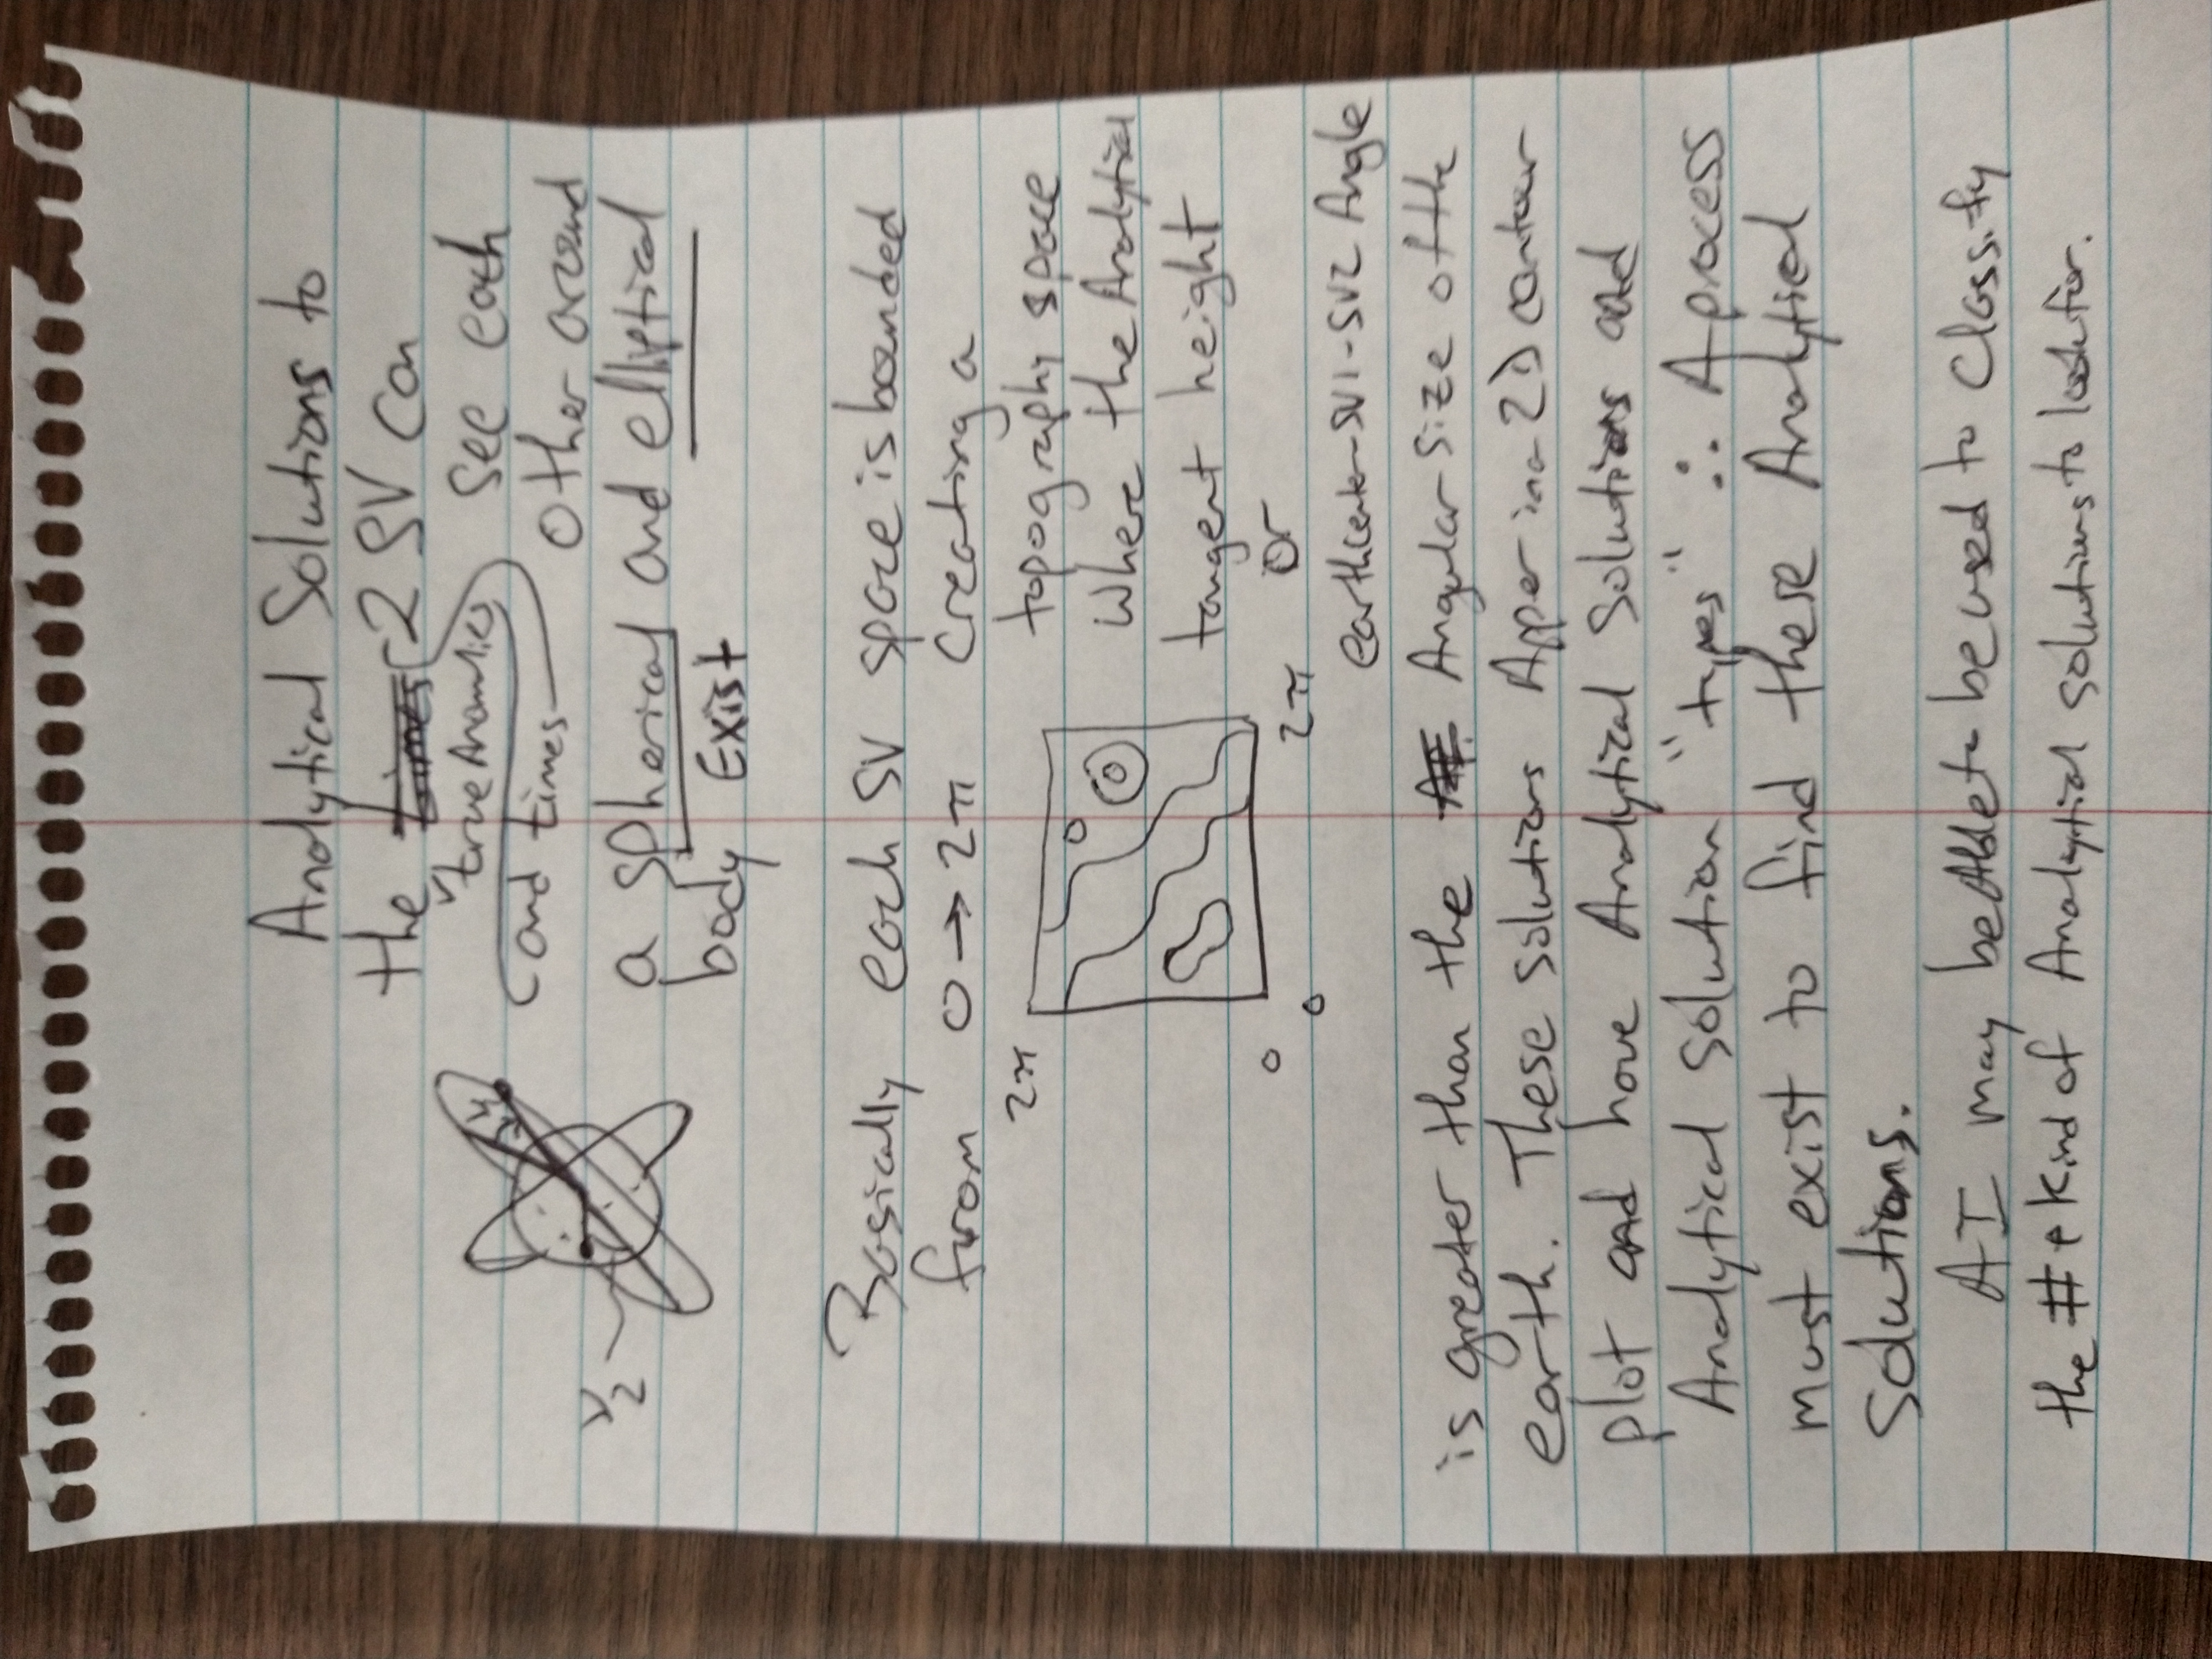 Analytical Solutions to
the 2 SV can
true anomalies see each
and times other around
a spherical and elliptical
body Exist
ν2
Basically each SV space is bounded
from 0 → 2π creating a
topography space
where the Analytical
tangent height
or
earthcenter-SV1-SV2 Angle
2π
0
0
2π
is greater than the Angular size of the
earth. These solutions Apper in a 2D contour
plot and have Analytical Solutions and
Analytical solution "types" ∴ A process
must exist to find these Analytical
Solutions.
AI may be Able to be used to classify
the # + kind of Analytial solutions to look for.